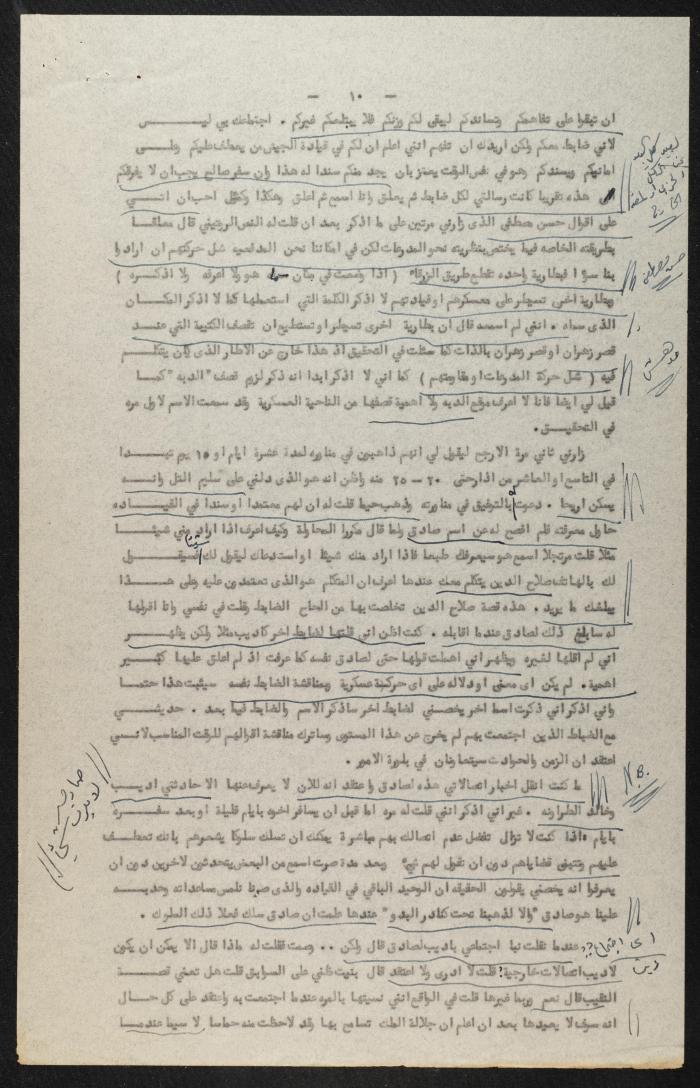 - ١٠ -
ان تبقوا على تفاهمكم وتساندكم ليبقى لكم وزنكم فلا يبتلعكم غيركم . اجتماعك بي ليس
لاني ضابط معكم ولكن اريدك ان تفهم انني اعلم ان لكم في قيادة الجيش من يعطف عليكم وعلى
امانيكم ويسندكم وهو في نفس الوقت يعتز بان يجد منكم سندا له هذا وان سفر صالح يجب ان لا يفرقكم
هذه تقريبا كانت رسالتي لكل ضابط ثم يعلق وانا اسمع ثم اعلق وهكذا وكمثل احب ان اتسي
على اقوال حسن مصطفى الذي زارني مرتين على ما اذكر بعد ان قلت له النص الروتيني قال معلقا
بطريقته الخاصه فيما يختص بنظريته نحو المدرعات لكن في امكاننا نحن المدفعيه شل حركتهم ان ارادوا
بنا سوءا فبطارية واحده تقطع طريق الزرقاء ( اذا وضعت في مكان سماه هو ولا اعرفه ولا اذكره )
وبطارية اخرى تسيطر على معسكرهم او قيادتهم لا اذكر الكلمة التي استعملها كما لا اذكر المكان
الذي سماه . انني لم اسمعه قال ان بطارية اخرى تسيطر او تستطيع ان تقصف الكتيبة التي عند
قصر زهران او قصر زهران بالذات كما سئلت في التحقيق اذ هذا خارج عن الاطار الذي كان يتكلم
فيه ( شل حركة المدرعات او مقاومتهم ) كما اني لا اذكر ابدا انه ذكر لزوم قصف "الدبه" كما
قيل لي ايضا فانا لا اعرف موقع الدبه ولا اهمية قصفها من الناحية العسكرية وقد سمعت الاسم لاول مره
في التحقيق.
زارني ثاني مرة الارجح ليقول لي انهم ذاهبون في مناوره لمدة عشرة ايام او ١٥ يوم تبدا
في التاسع او العاشر من اذار حتى ٢٠ - ٢٥ منه واظن انه هو الذي دلني على سليم التل وانه
يسكن اريحا . دعوت بالتوفيق في مناورته وذهب حيط قلت له ان لهم معتمدا او سندا في القياده
حاول معرفته فلم افصح له عن اسم صادق ولما قال مكررا المحاولة وكيف اعرف اذا اراد مني شيئا
مثلا قلت مرتجلا اسمع هو سيعرفك طبعا فاذا اراد منك شيئا او استدعاك ليقول لك شيئا فسيقول
لك بالهاتف صلاح الدين يتكلم معك عندها اعرف ان المتكلم هو الذي تعتمدون عليه وعلى هذا
يبلغك ما يريد . هذه قصة صلاح الدين تخلصت بها من الحاح الضابط وقلت في نفسي وانا اقولها
له سابلغ ذلك لصادق عندما اقابله . كنت اظن اني قلتها لضابط اخر كاديب مثلا ولكن يظهر
اني لم اقلها لغيره ويظهر اني اهملت قولها حتى لصادق نفسه كما عرفت اذ لم اعلق عليها كبير
اهمية . لم يكن اى معنى او دلاله على اى حركة عسكرية وبمناقشة الضابط نفسه سيثبت هذا حتما
واني اذكر اني ذكرت اسما اخر يخصني لضابط اخر ساذكر الاسم والضابط فيما بعد . حديثي
مع الضباط الذين اجتمعت بهم لم يخرج عن هذا المستوى وساترك مناقشة اقوالهم للوقت المناسب لانني
اعتقد ان الزمن والحوادث سيتعاونان في بلورة الامور .
ما كنت انقل اخبار اتصالاتي هذه لصادق واعتقد انه للان لا يعرف عنها الا حادثتي اديب
وخالد الطراونه . غير اني اذكر انني قلت له مره اما قبل ان يسافر اخوه بايام قليلة او بعد سفره
بايام "اذا كنت لا تزال تفضل عدم اتصالك بهم مباشرة يمكنك ان تسلك سلوكا يشعرهم بانك تعطف
عليهم وتتبنى قضاياهم دون ان تقول لهم شيء" وبعد مدة صرت اسمع من البعض يتحدثون لاخرين دون ان
يعرفوا انه يخصني يقولون الحقيقه ان الوحيد الباقي في القياده والذي صرنا نلمس مساعداته وحدبه
علينا هو صادق "والا لذهبنا تحت كنادر البدو" عندها علمت ان صادق سلك فعلا ذلك السلوك .
عندما نقلت نبا اجتماعي باديب لصادق قال ولكن .. وصمت فقلت له ماذا قال الا يمكن ان يكون
لاديب اتصالات خارجية؟ قلت لا ادرى ولا اعتقد قال بنيت ظني على السوابق قلت هل تعني قصة
النقيب قال نعم وربما غيرها قلت في الواقع انني نسيتها بالمره عندما اجتمعت به واعتقد على كل حال
انه سوف لا يعيدها بعد ان اعلم ان جلالة الملك تسامح بها وقد لاحظت منه حماسا لا سيما عندما
حسن مصطفى
N.B.
اى اجتماع؟؟